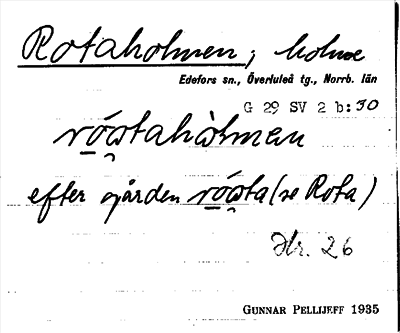 Rotaholmen; holme
Edefors sn., Överluleå tg., Norrb. län
G 29 SV 2 b:30
róͅatahȧlmen
efter gården róͅata (se Rota)
Hr. 26
GUNNAR PELLIJEFF 1935